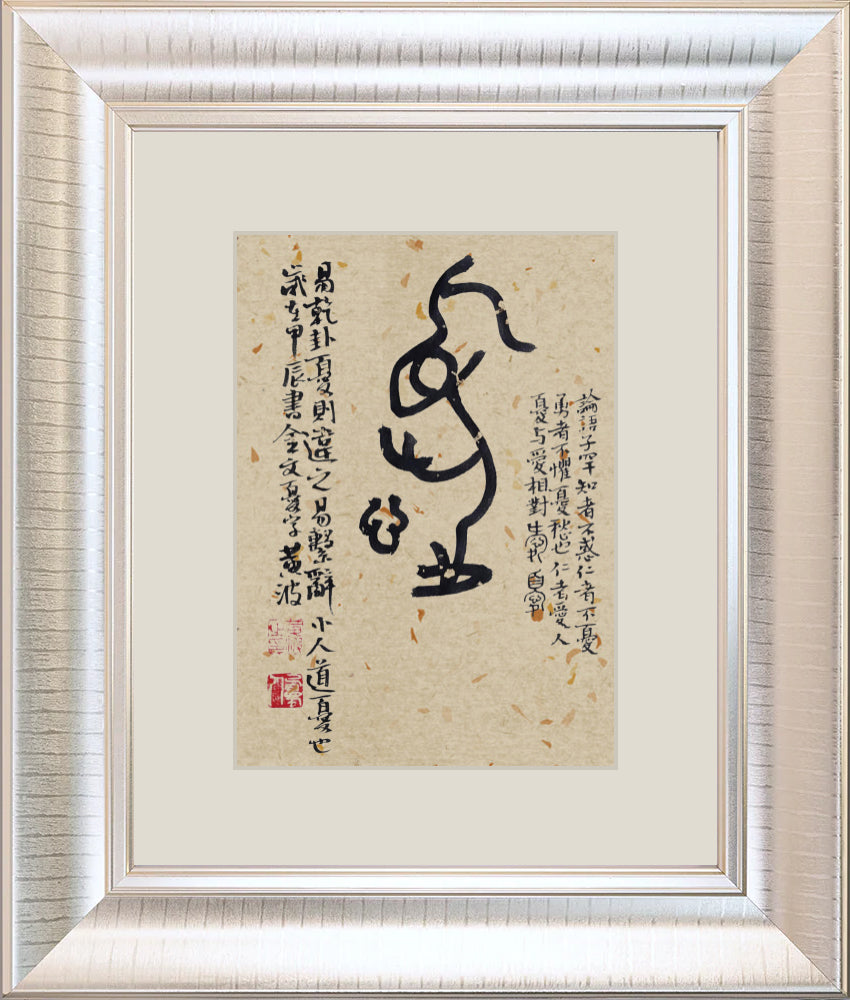 論語子罕知者不惑仁者不憂
勇者不懼憂愁也仁者愛人
憂与愛相對生
憂
易乾卦憂則違之易繫辭小人道憂也
歲在甲辰書金文憂字黃波